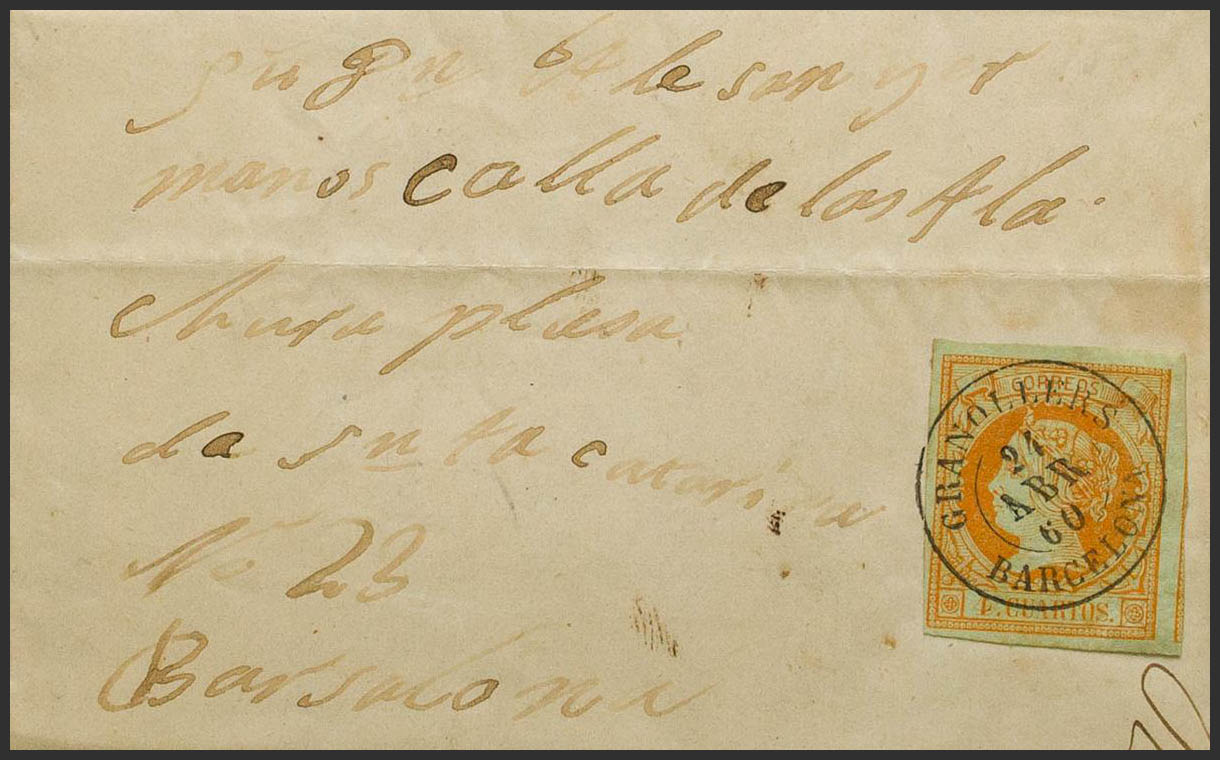 manos calla de los Ala
chura plasa
da snta catarina
No 23
Barsalona
CORREOS
GRANOLLERS
21
ABR
60
BARCELONA
4. CUARTOS.